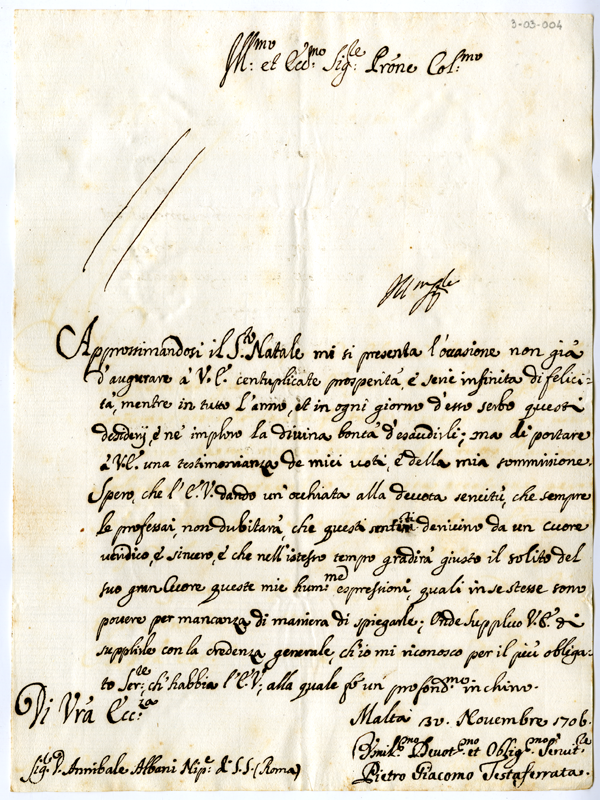 3-03-004
Ill:mo et Ecc:mo Sig:re Prone Col:mo
Approssimandosi il S.to Natale mi si presenta l'occasione non già
d'augurare à V.E. centuplicate prosperità, è serie infinita di felici-
tà, mentre in tutto l'anno, et in ogni giorno d'esso serbo questi
desiderij, è ne imploro la divina bontà d'esaudirli; ma di portare
à V.E. una testimonianza de miei voti, è della mia sommissione.
Spero, che l'E.V. dando un'occhiata alla devota servitù, che sempre
le professai, non dubitarà, che questi sentiti derivino da un cuore
veridico, è sincero, è che nell'istesso tempo gradirà giusto il solito del
suo gran Cuore queste mie hum:me espressioni, quali in se stesse sono
povere per mancanza di maniera di spiegarle; Onde supplico V.E. di
supplirle con la credenza generale, ch'io mi riconosco per il più obliga-
to Ser:re, ch'habbia l'E.V; alla quale fò un profond:mo inchino.
Di Vra Ecc:za
Malta 30. Novembre 1706.
Humil:mo Devot:mo et Oblig:mo Servit:re
Sig:r D. Annibale Albani Nip:e di S.S. (Roma)
Pietro Giacomo Testaferrata.